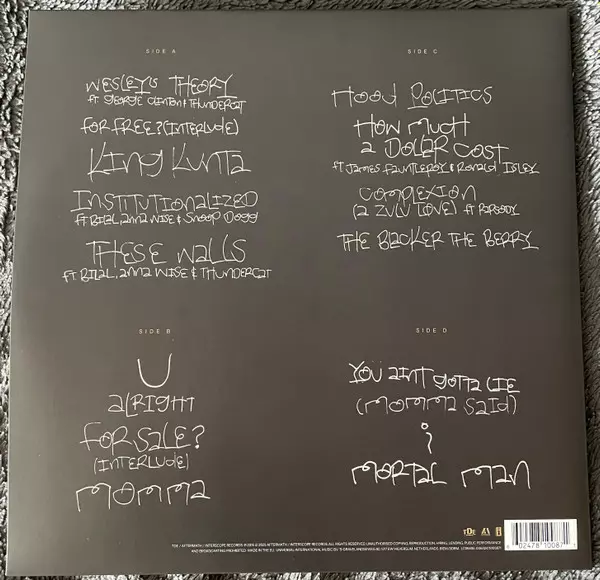 SIDE A
WESLEY'S THEORY
ft GEORGE CLINTON & THUNDERCAT
FOR FREE? (INTERLUDE)
King Kunta
INSTITUTIONALIZED
ft BILAL, anna WISE & Snoop Dogg
THESE walls
ft BILAL, anna WISE & THUNDERCAT
SIDE B
U
alright
FOR SALE?
(INTERLUDE)
momma
SIDE C
Hood POLITICS
How much
a DOLLER COST
ft James Fauntleroy & Ronald Isley
COMPLEXION
(a ZULU LOVE) ft RAPSODY
THE BACKER THE BERRY
SIDE D
You aint gotta LIE
(momma said)
i
mortal man
TDE
6 02478 10087